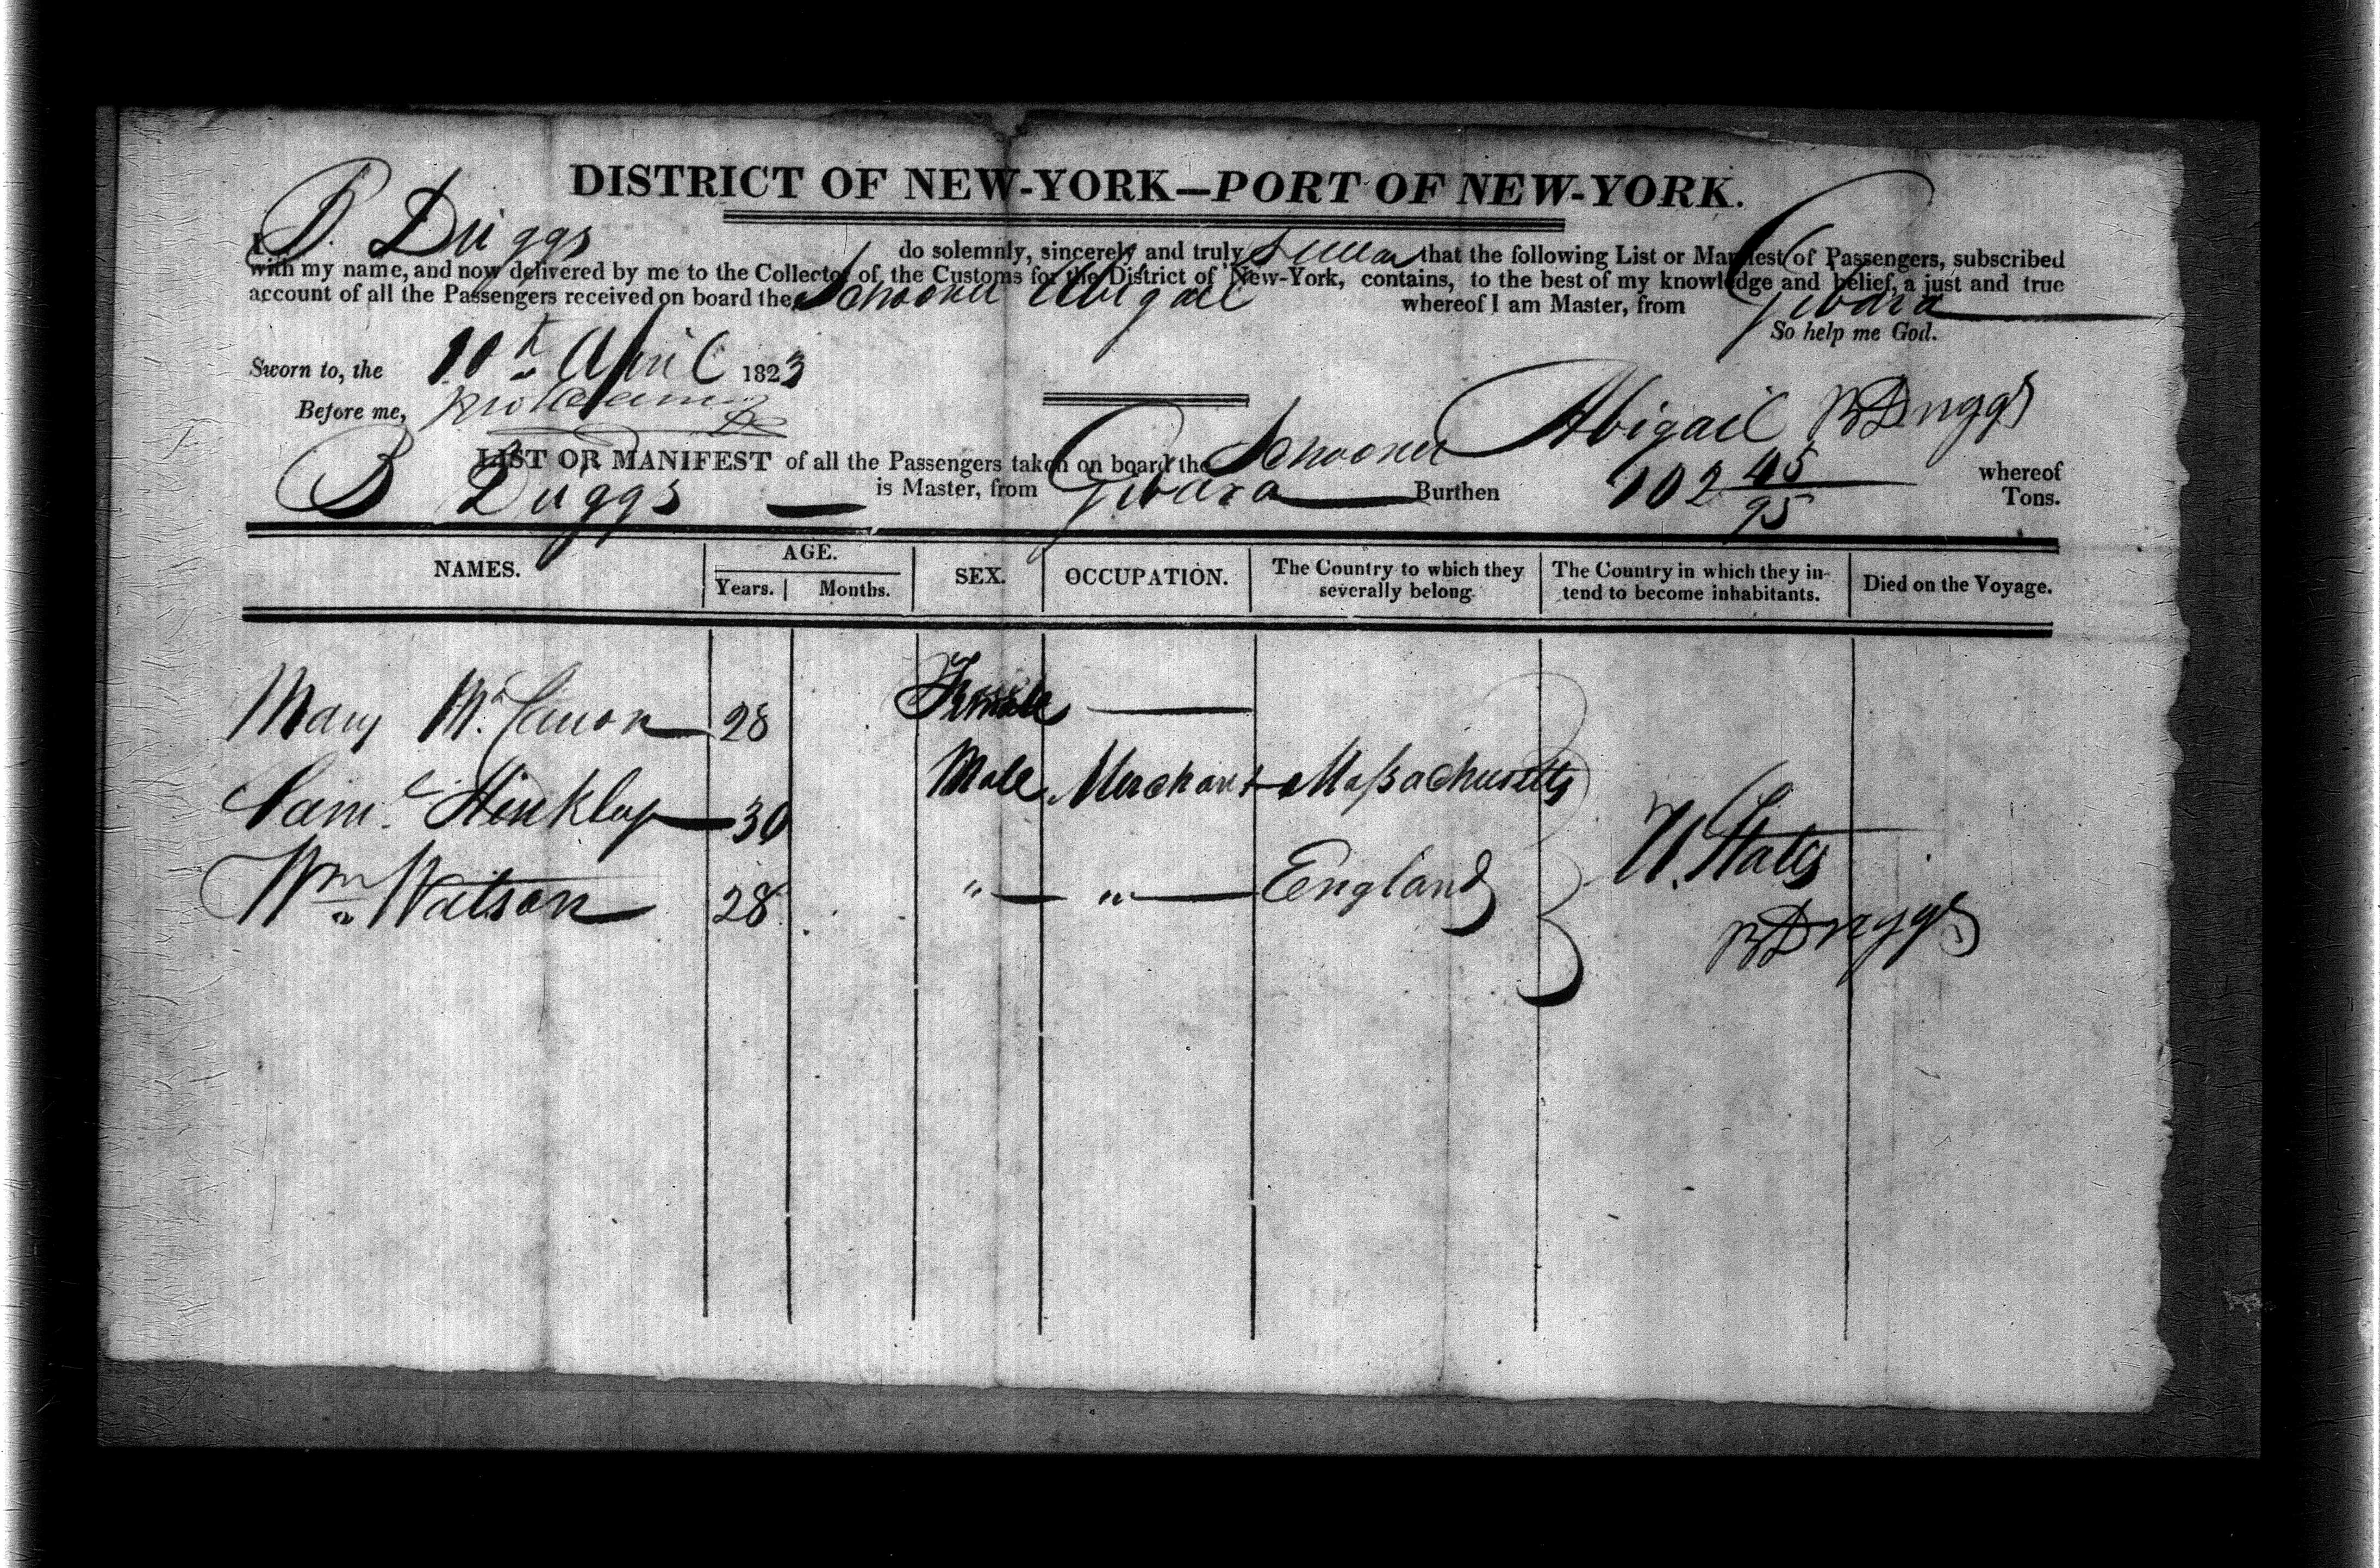 DISTRICT OF NEW-YORK—PORT OF NEW-YORK.
I, B. Driggs do solemnly, sincerely and truly swear that the following List or Manifest of Passengers, subscribed
with my name, and now delivered by me to the Collector of the Customs for the District of New-York, contains, to the best of my knowledge and belief, a just and true
account of all the Passengers received on board the Schooner Abigail whereof I am Master, from Gibara
So help me God.
Sworn to, the 10th April 1823
Before me, B Driggs
LIST OR MANIFEST of all the Passengers taken on board the Schooner Abigail whereof
B Driggs is Master, from Gibara Burthen 102 45/95 Tons.
NAMES. AGE. SEX. OCCUPATION. The Country to which they severally belong. The Country in which they intend to become inhabitants. Died on the Voyage.
Years. Months.
Mary 28 Female
Saml. Hinkley 30 Male Merchant Massachusetts
Wm Watson 28 " " England U. States
B Driggs